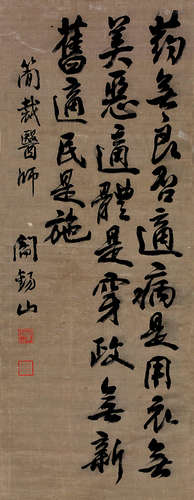 药無良否適病是用衣無
美惡適體是穿政無新
舊適民是施
簡哉醫師 閻錫山